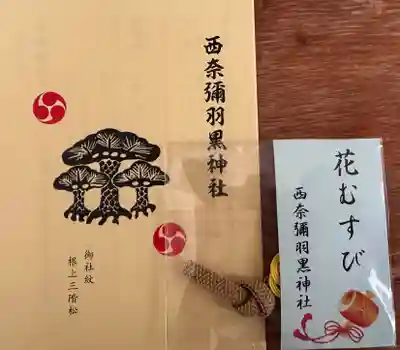 西奈彌羽黒神社
御社紋
根上三階松
花むすび
西奈彌羽黒神社